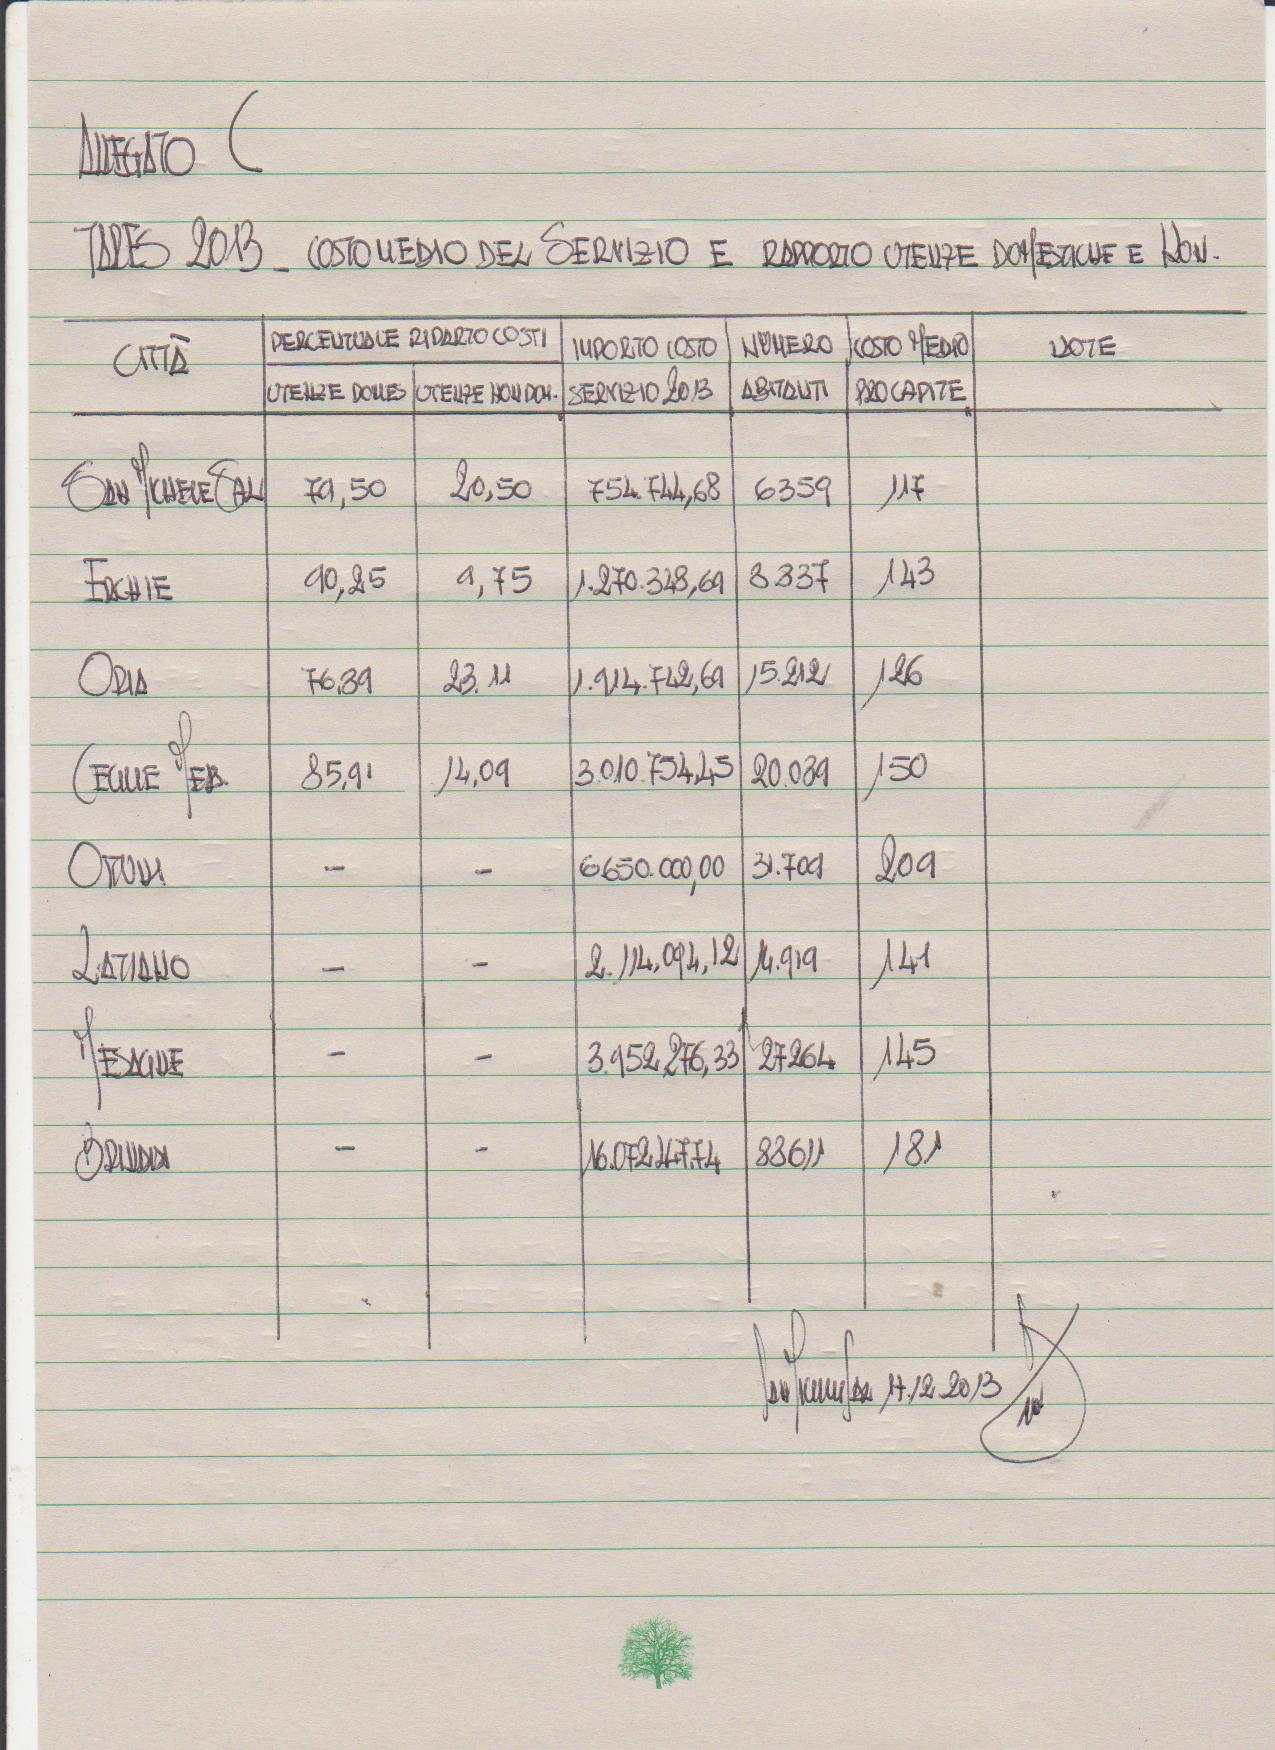 ALLEGATO C
TARES 2013 - COSTO MEDIO DEL SERVIZIO E RAPPORTO UTENZE DOMESTICHE E NON.
CITTÀ PERCENTUALE RIPARTO COSTI IMPORTO COSTO NUMERO COSTO MEDIO NOTE
UTENZE DOMES UTENZE NON DOM. SERVIZIO 2013 ABITANTI PROCAPITE
SAN MICHELE SAL 79,50 20,50 754.744,68 6359 117
ERCHIE 90,25 9,75 1.270.348,69 8837 143
ORIA 76.89 23.11 1.914.742,69 15.212 126
CEGLIE MES. 85,91 14,09 3.010.754,45 20.039 150
OSTUNI - - 6.650.000,00 31.709 209
LATIANO - - 2.114.094,12 14.919 141
MESAGNE - - 3.952.276,33 27264 145
BRINDISI - - 16.072.147.74 88611 181
SAN MICHELE SAL 17.12.2013